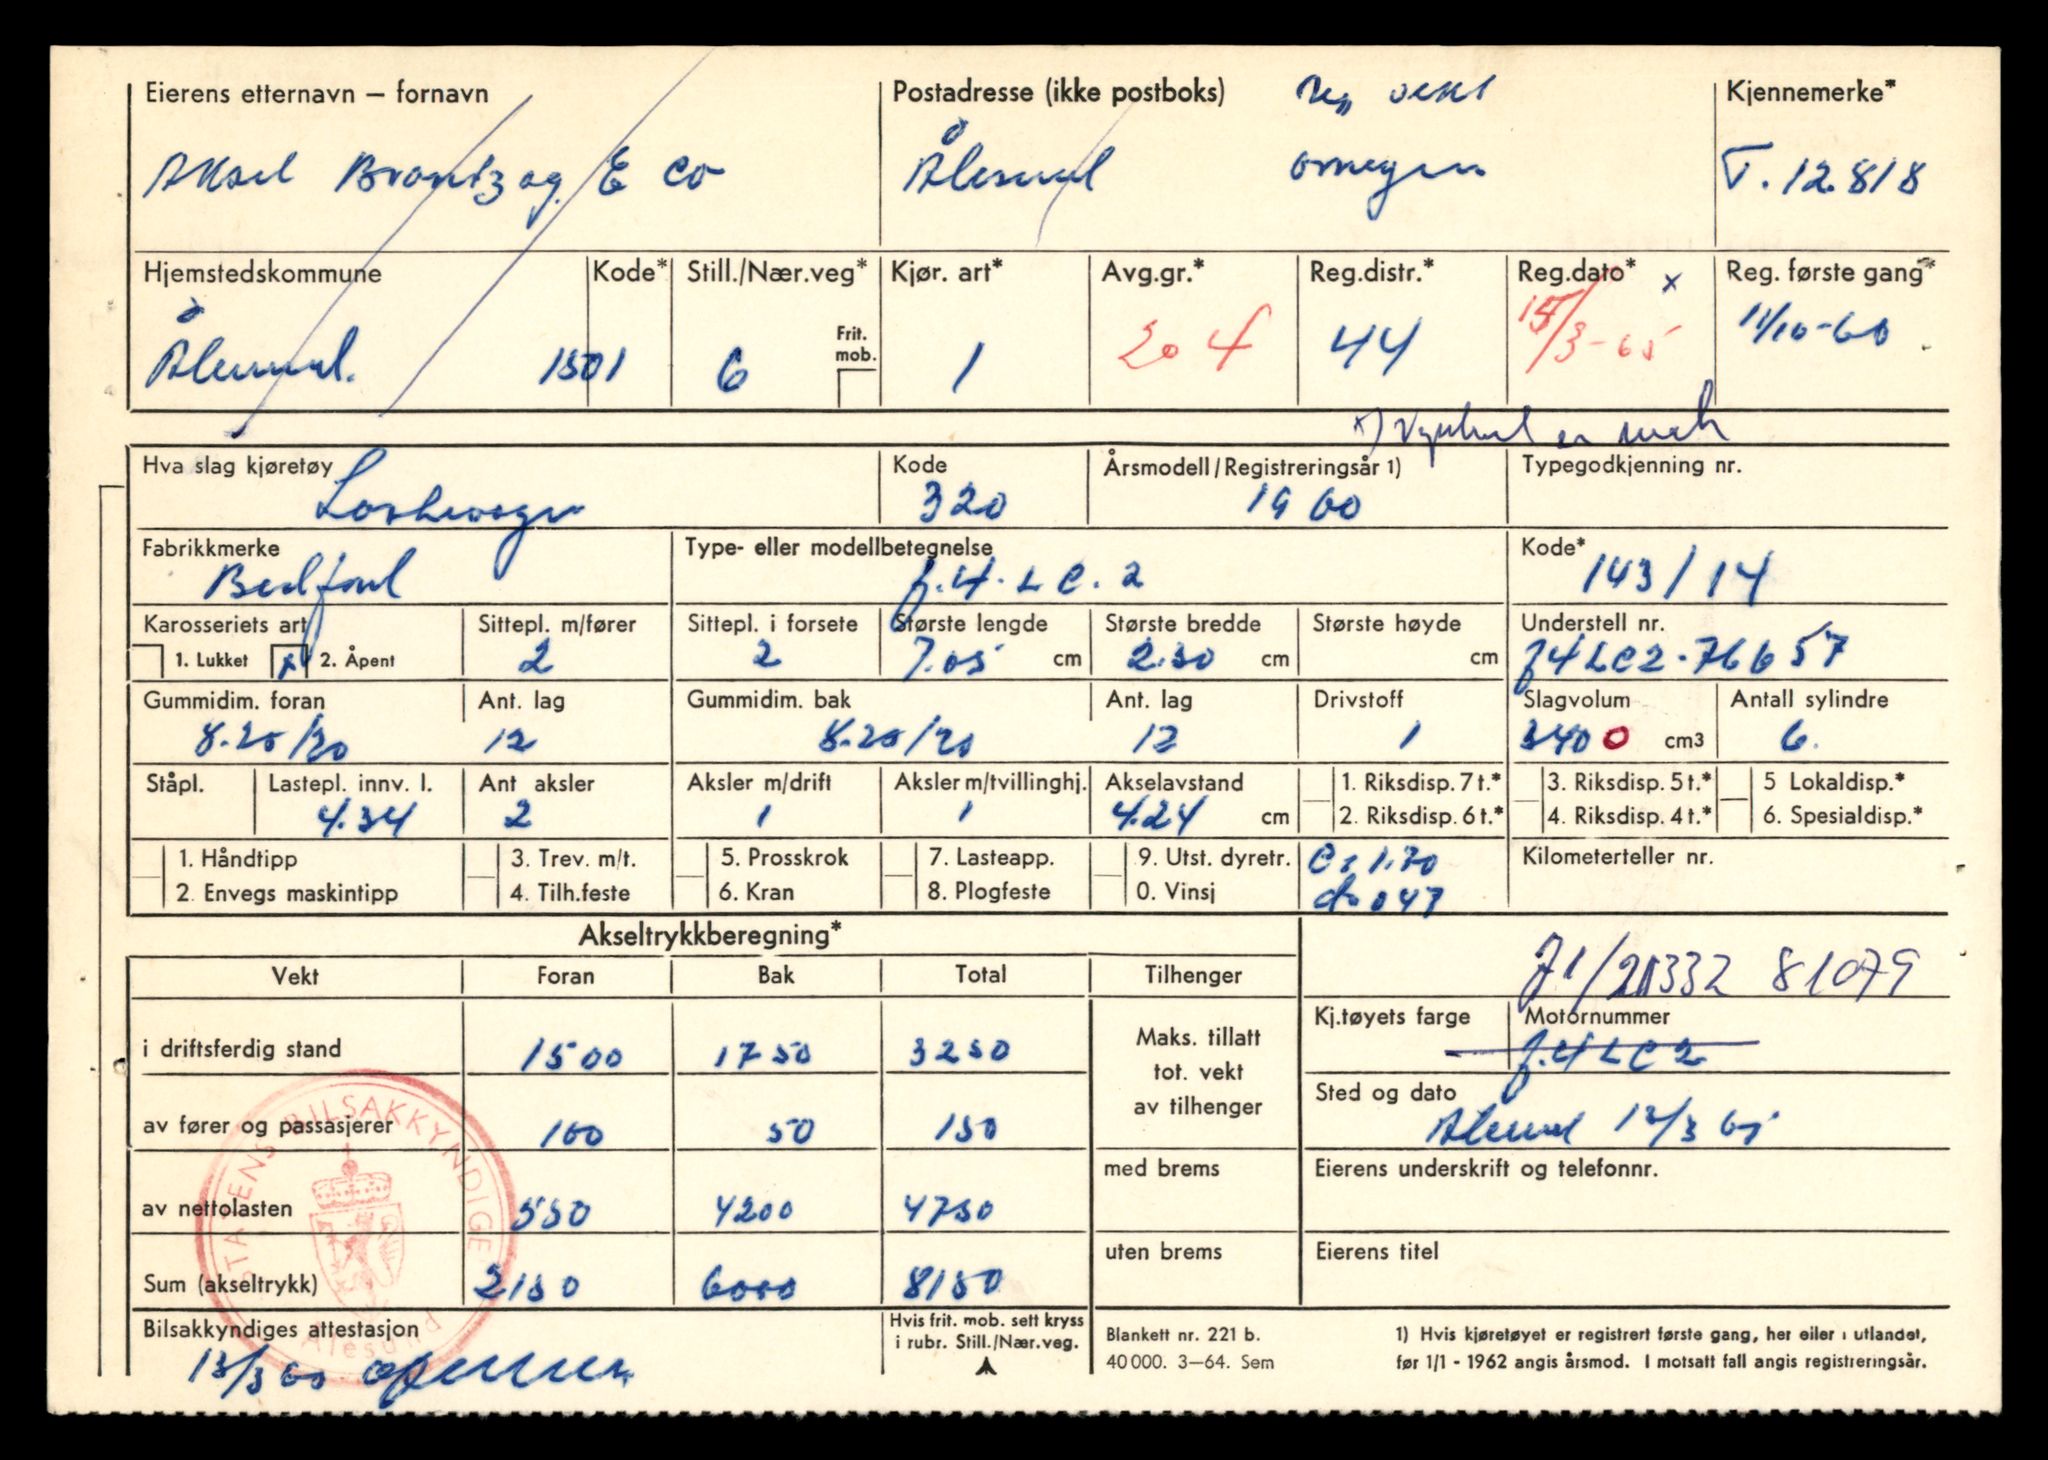 Eierens etternavn – fornavn Postadresse (ikke postboks) Reg vekt Kjennemerke*
Aksel Brantzog E Co Ålesund omregn T. 12.818
Hjemstedskommune Kode* Still./Nær.veg* Kjør. art* Avg.gr.* Reg.distr.* Reg.dato* x Reg. første gang*
Ålesund. 1501 6 Frit. mob. 1 204 44 15/3-65 11/10-60
x)
Hva slag kjøretøy Kode Årsmodell/Registreringsår 1) Typegodkjenning nr.
Lastevogn 320 1960
Fabrikkmerke Type- eller modellbetegnelse Kode*
Bedford J.4.LC.2 143/14
Karosseriets art Sittepl. m/fører Sittepl. i forsete Største lengde Største bredde Største høyde Understell nr.
1. Lukket x 2. Åpent 2 2 7.05 cm 2.30 cm cm J4LC2-76657
Gummidim. foran Ant. lag Gummidim. bak Ant. lag Drivstoff Slagvolum Antall sylindre
8.25/20 12 8.25/20 12 1 3400 cm3 6.
Ståpl. Lastepl. innv. l. Ant aksler Aksler m/drift Aksler m/tvillinghj. Akselavstand 1. Riksdisp. 7 t.* 3. Riksdisp. 5 t.* 5 Lokaldisp.*
4.34 2 1 1 4.24 cm 2. Riksdisp. 6 t.* 4. Riksdisp. 4 t.* 6. Spesialdisp.*
1. Håndtipp 3. Trev. m/t. 5. Prosskrok 7. Lasteapp. 9. Utst. dyretr. C = 1.70 Kilometerteller nr.
2. Envegs maskintipp 4. Tilh.feste 6. Kran 8. Plogfeste 0. Vinsj d = 047
Akseltrykkberegning*
Vekt Foran Bak Total Tilhenger J1/21332 81079
i driftsferdig stand 1500 1750 3250 Maks. tillatt tot. vekt av tilhenger Kj.tøyets farge Motornummer
J.4LC2
av fører og passasjerer 100 50 150 Sted og dato
Ålesund 12/3 65
av nettolasten 550 4200 4750 med brems Eierens underskrift og telefonnr.
Sum (akseltrykk) 2150 6000 8150 uten brems Eierens titel
STATENS BILSAKKYNDIGE
Ålesund
Bilsakkyndiges attestasjon Hvis frit. mob. sett kryss Blankett nr. 221 b. 1) Hvis kjøretøyet er registrert første gang, her eller i utlandet,
i rubr. Still./Nær.veg. 40 000. 3–64. Sem før 1/1 - 1962 angis årsmod. I motsatt fall angis registreringsår.